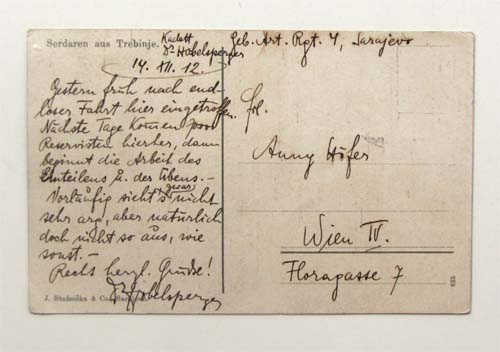 Serdaren aus Trebinje.
Kadett
Dr Habelsperger
Geb. Art. Rgt. 4, Sarajevo
14. XII. 12!
Gestern früh nach end-
loser Fahrt hier eingetroffen.
Nächste Tage kommen
Reservisten hierher, dann
beginnt die Arbeit des
Einteilens u. des Übens.–
Vorläufig sieht's zwar nicht
sehr arg, aber natürlich
doch nicht so aus, wie
sonst.–
Recht herzl. Grüße!
Dr Habelsperger
J. Studnička & Co.
Frl.
Anny Höfer
Wien IV.
Floragasse 7
625